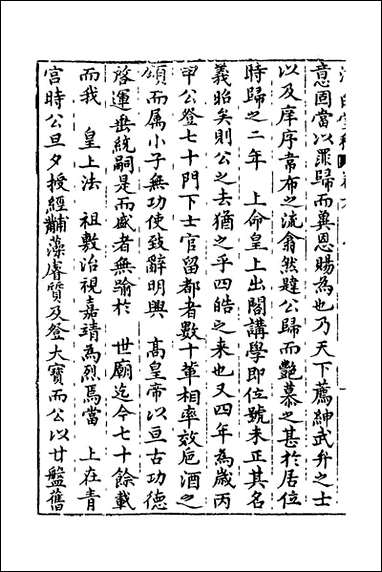 意固當以罪歸而冀恩賜為也乃天下薦紳武弁之士
以及庠序韋布之流翕然韙公歸而艷慕之甚於居位
時歸之二年　上命皇上出閣講學即位號未正其名
義昭矣則公之去猶之乎四皓之来也又四年為歲丙
甲公登七十門下士官留都者數十輩相率效卮酒之
頌而属小子無功使致辭明興　高皇帝以亘古功德
啓運垂統嗣是而盛者無踰於　世廟迄今七十餘載
而我　皇上法　祖敷治視嘉靖為烈焉當　上在青
宫時公旦夕授經黼藻睿質及登大寶而公以甘盤舊